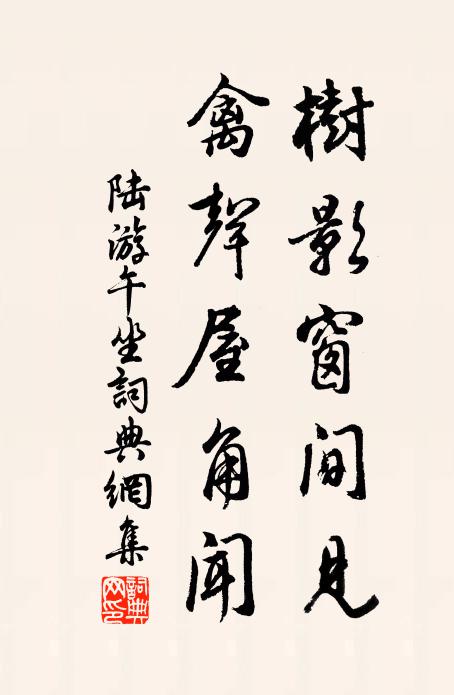 樹影窗間見
禽聲屋角聞
陸游午坐詞典網集
詞典網印